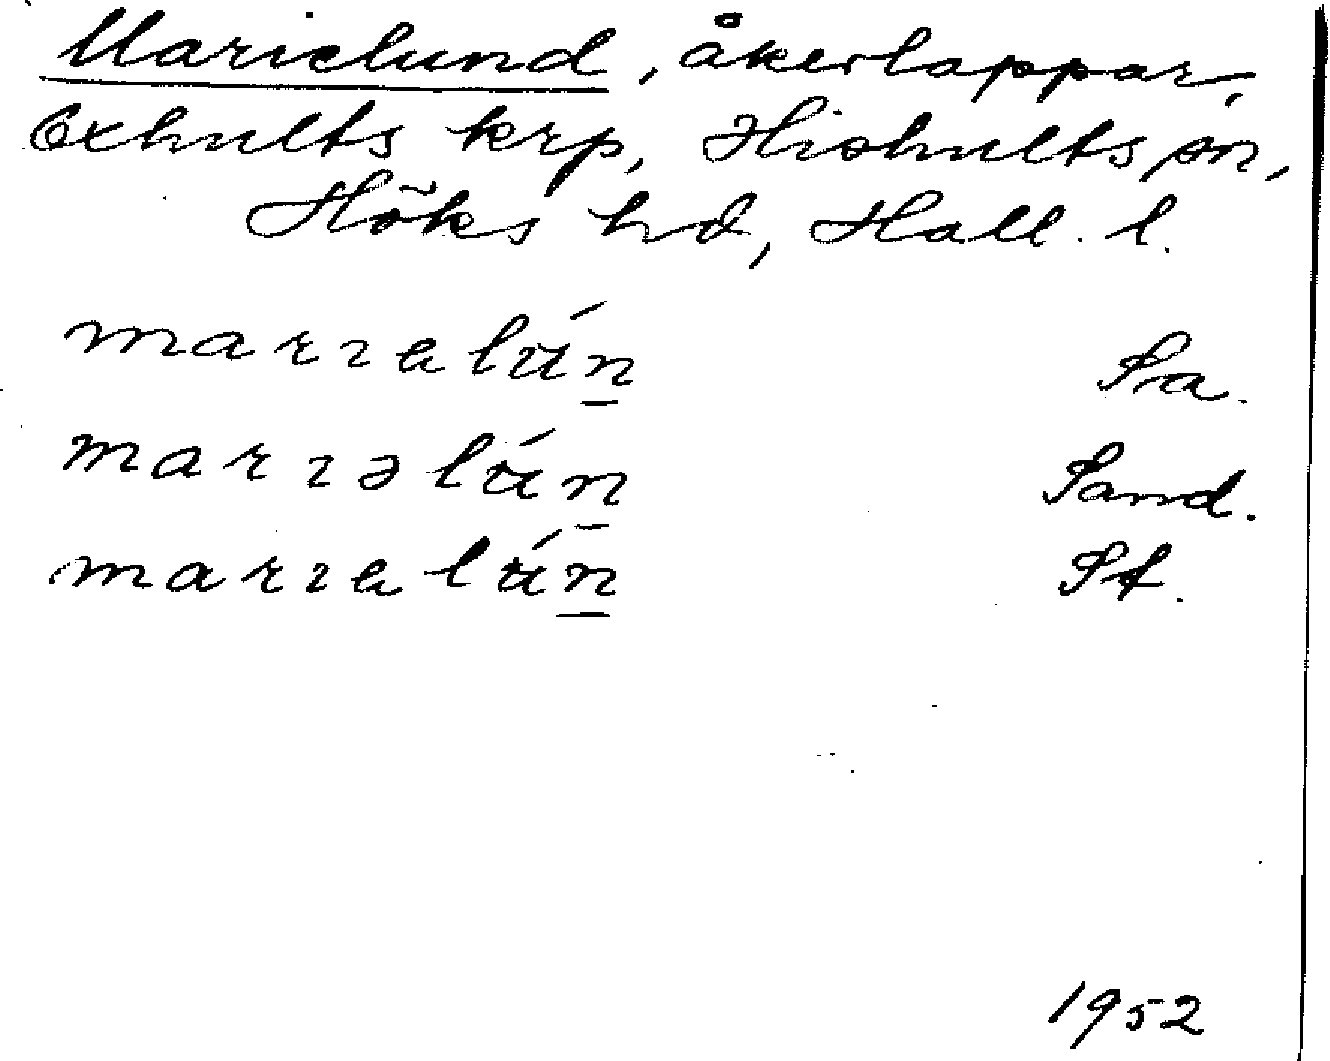 Marielund, åkerlappar,
Oxhults krp, Hishults sn,
Höks hd, Hall. l.
marıalún̲ Sa.
marıəlún̲ Sand.
marıalún̲ St.
1952